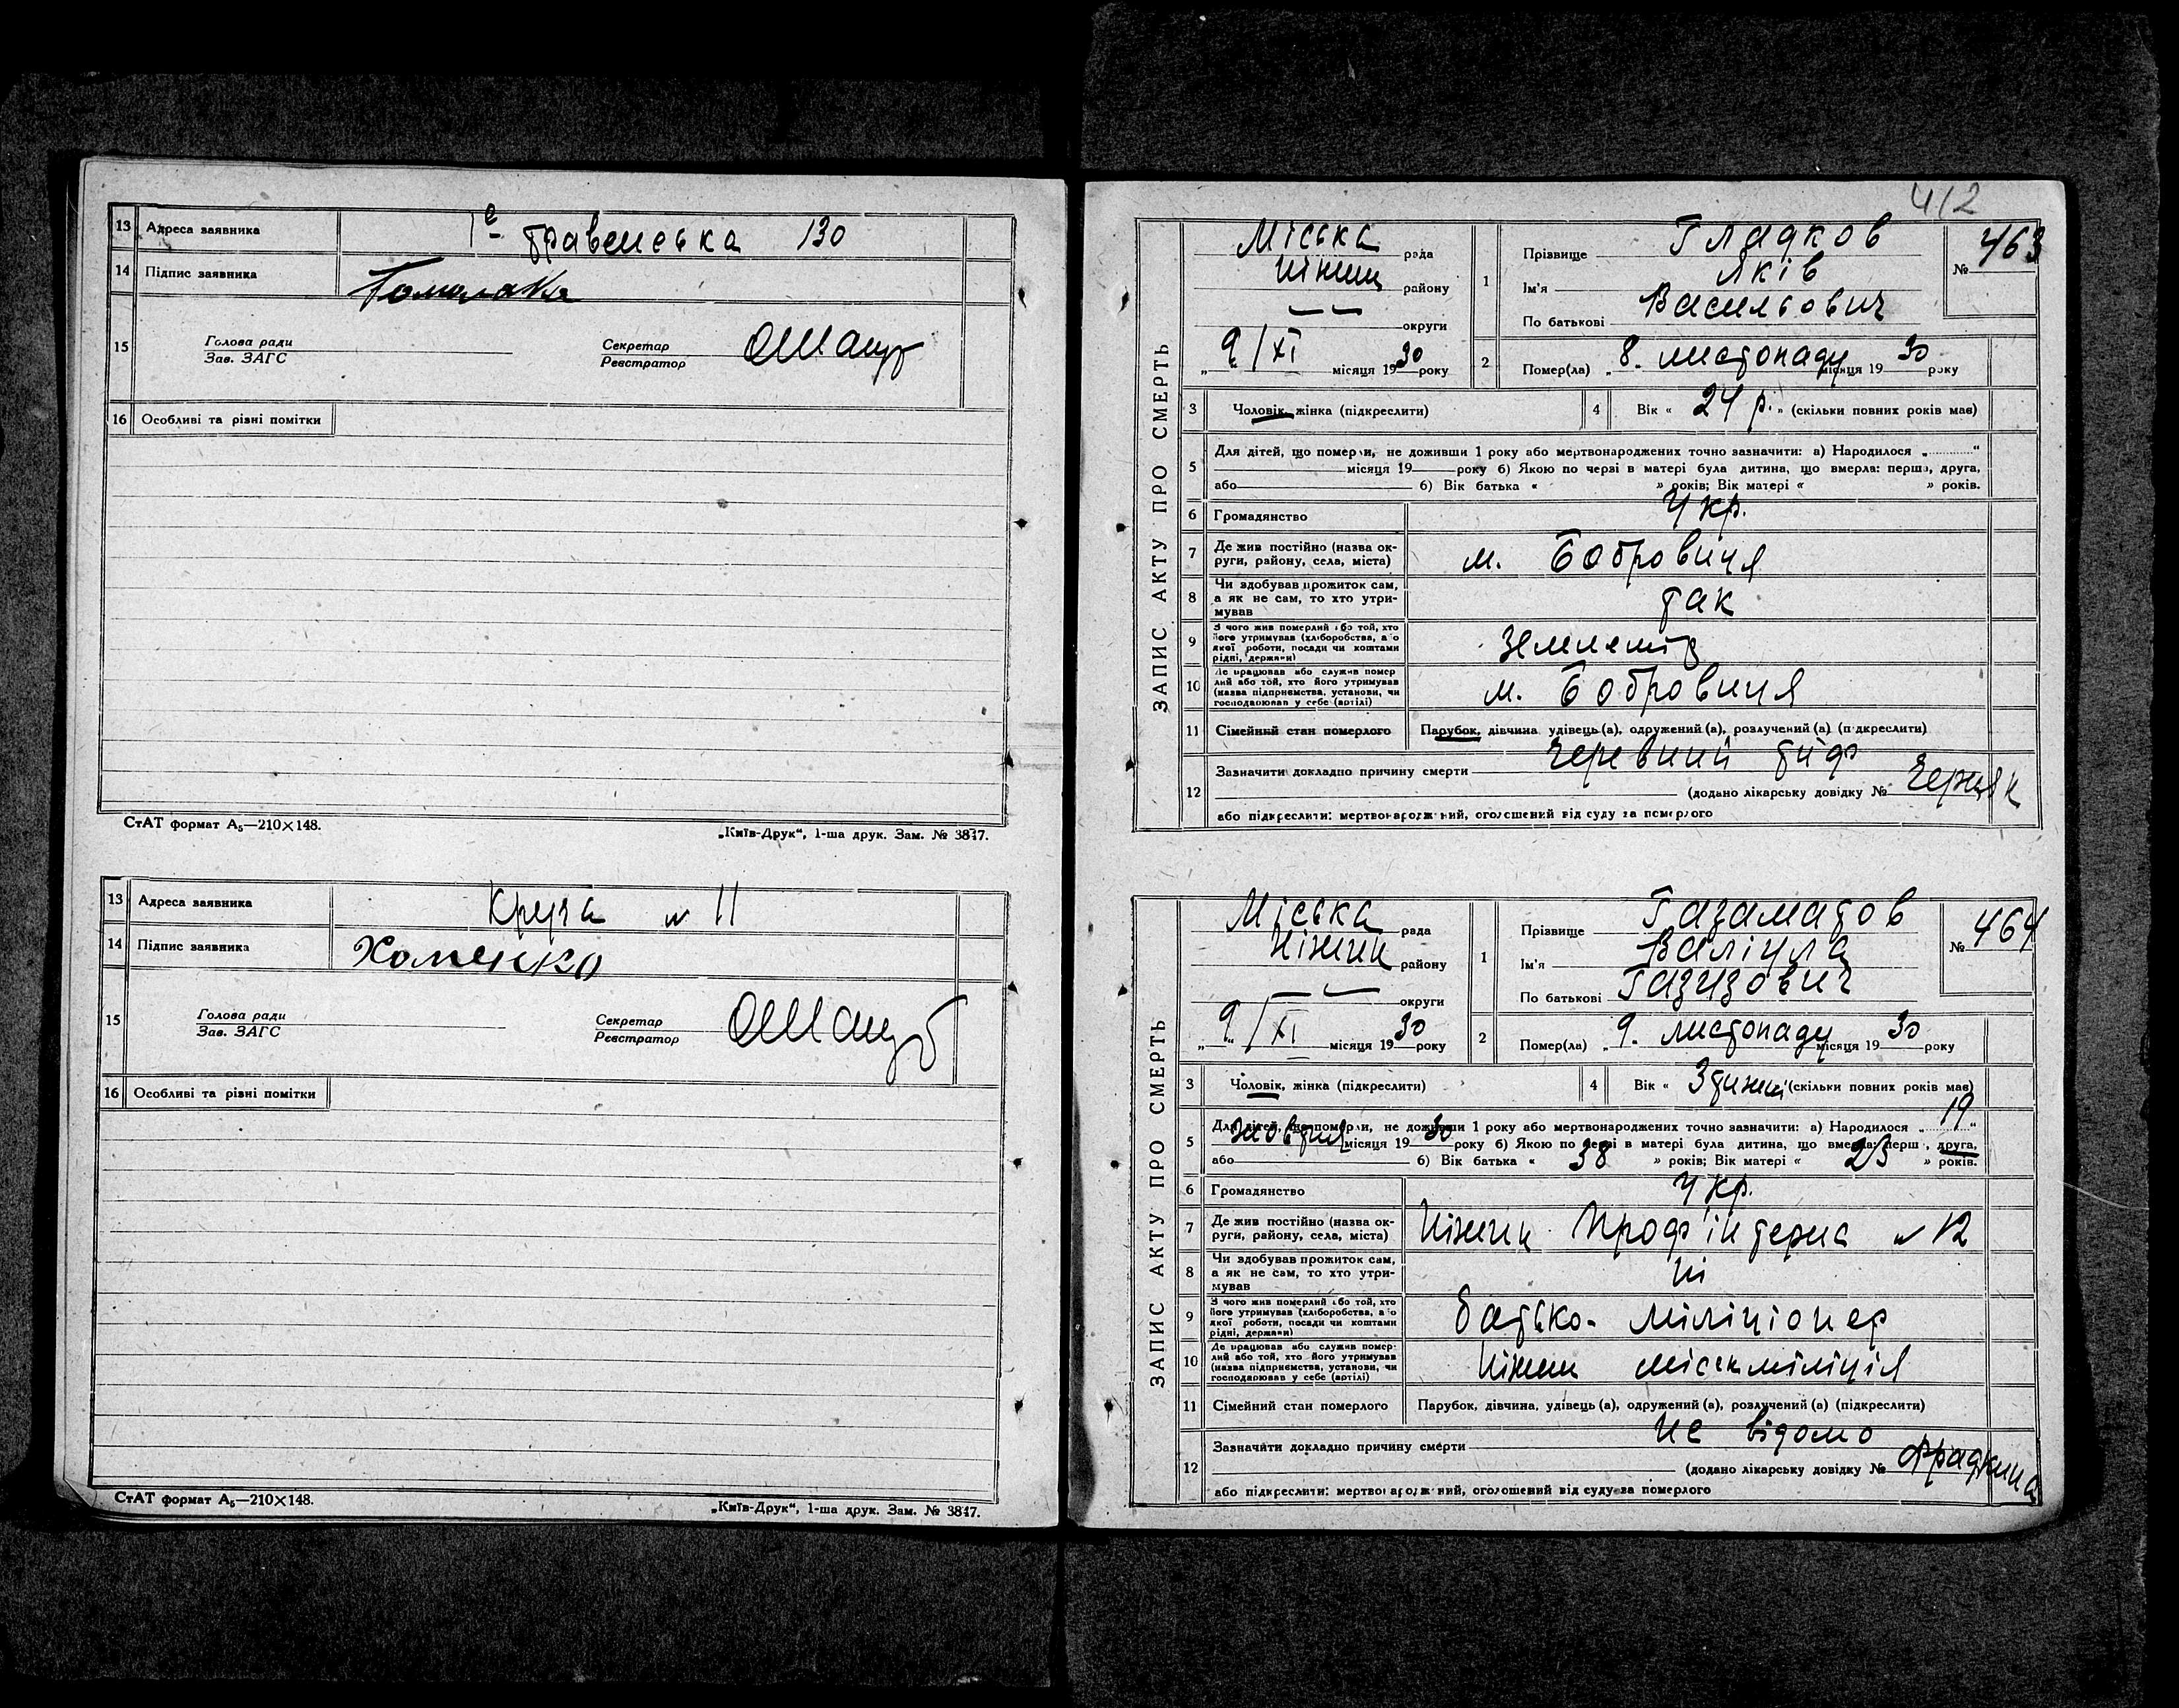 13 Адреса заявника 1е Травенська 130
14 Підпис заявника
15 Голова ради Зав. ЗАГС Секретар Реєстратор
16 Особливі та різні помітки
СтАТ формат А₅—210×148. „Київ-Друк“, 1-ша друк. Зам. № 3847.
13 Адреса заявника Круча № 11
14 Підпис заявника Хоменко
15 Голова ради Зав. ЗАГС Секретар Реєстратор
16 Особливі та різні помітки
СтАТ формат А₅—210×148. „Київ-Друк“, 1-ша друк. Зам. № 3847.
412
ЗАПИС АКТУ ПРО СМЕРТЬ
Міська рада
Ніжин району
округи
„9/XI місяця 1930 року
1 Прізвище Гладков
Ім'я Яків
По батькові Васильович
№ 463
2 Помер(ла) „8. листопаду місяця 1930 року
3 Чоловік, жінка (підкреслити)
4 Вік « 24 р. » (скільки повних років має)
5 Для дітей, що померли, не доживши 1 року або мертвонароджених точно зазначити: а) Народилося „ “
місяця 19 року б) Якою по черзі в матері була дитина, що вмерла: перша, друга,
або б) Вік батька « » років; Вік матері « » років.
6 Громадянство Укр.
7 Де жив постійно (назва округи, району, села, міста) м. Бобровиця
8 Чи здобував прожиток сам, а як не сам, то хто утримував так
9 З чого жив померлий або той, хто його утримував (хліборобства, або якої роботи, посади чи коштами рідні, держави) землемір
10 Де працював або служив померлий або той, хто його утримував (назва підприємства, установи, чи господарював у себе (артілі) м. Бобровиця
11 Сімейний стан померлого Парубок, дівчина, удівець (а), одружений (а), розлучений (а) (підкреслити)
12 Зазначити докладно причину смерти черевний тиф
(додано лікарську довідку № Черняк
або підкреслити: мертвонароджений, оголошений від суду за померлого
ЗАПИС АКТУ ПРО СМЕРТЬ
Міська рада
Ніжин району
округи
„9/XI місяця 1930 року
1 Прізвище Газаматов
Ім'я Валіула
По батькові Газизович
№ 464
2 Помер(ла) „9. листопаду місяця 1930 року
3 Чоловік, жінка (підкреслити)
4 Вік « 3 тижні (скільки повних років має)
5 Для дітей, що померли, не доживши 1 року або мертвонароджених точно зазначити: а) Народилося „19“
жовтня місяця 1930 року б) Якою по черзі в матері була дитина, що вмерла: перша, друга,
або б) Вік батька « 38 » років; Вік матері « 23 » років.
6 Громадянство Укр.
7 Де жив постійно (назва округи, району, села, міста) Ніжин Профінтерна № 12
8 Чи здобував прожиток сам, а як не сам, то хто утримував ні
9 З чого жив померлий або той, хто його утримував (хліборобства, або якої роботи, посади чи коштами рідні, держави) батько - міліціонер
10 Де працював або служив померлий або той, хто його утримував (назва підприємства, установи, чи господарював у себе (артілі) Ніжин міськміліція
11 Сімейний стан померлого Парубок, дівчина, удівець (а), одружений (а), розлучений (а) (підкреслити)
12 Зазначити докладно причину смерти не відомо
(додано лікарську довідку № Фрадкина
або підкреслити: мертвонароджений, оголошений від суду за померлого